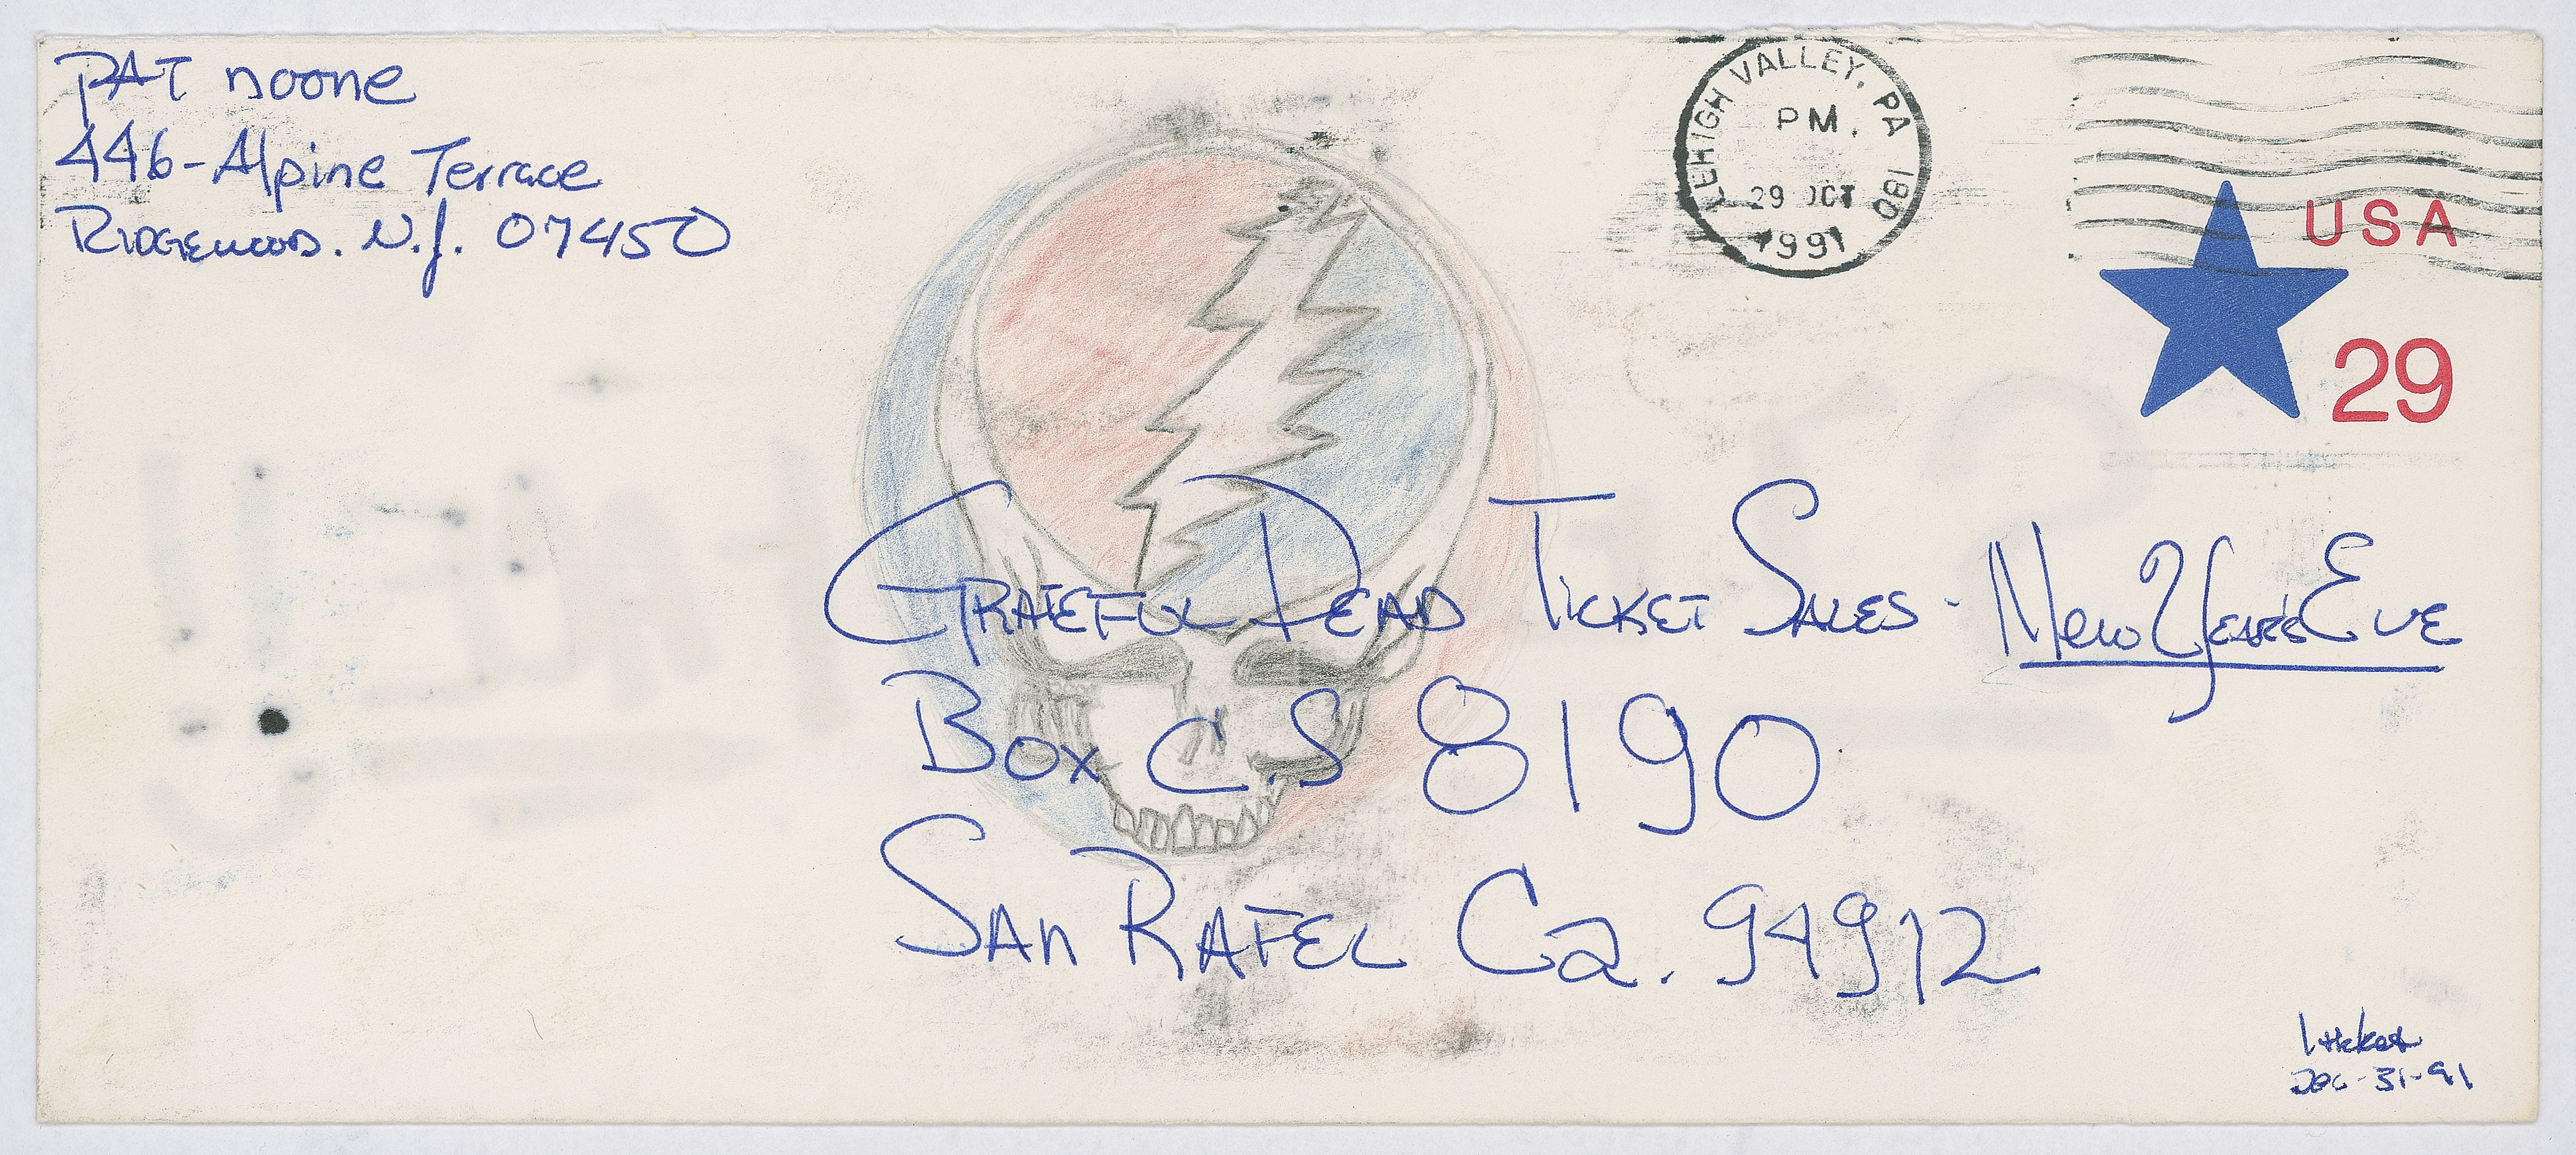 PAT noone
446-Alpine Terrace
RIDGEWOOD. N.J. 07450
LEHIGH VALLEY, PA 180
PM.
29 OCT
1991
USA
29
GRATEFUL DEAD TICKET SALES - New YEAR'S EVE
BOX C.S 8190
SAN RAFEL Ca. 94912
1 ticket
DEC-31-91